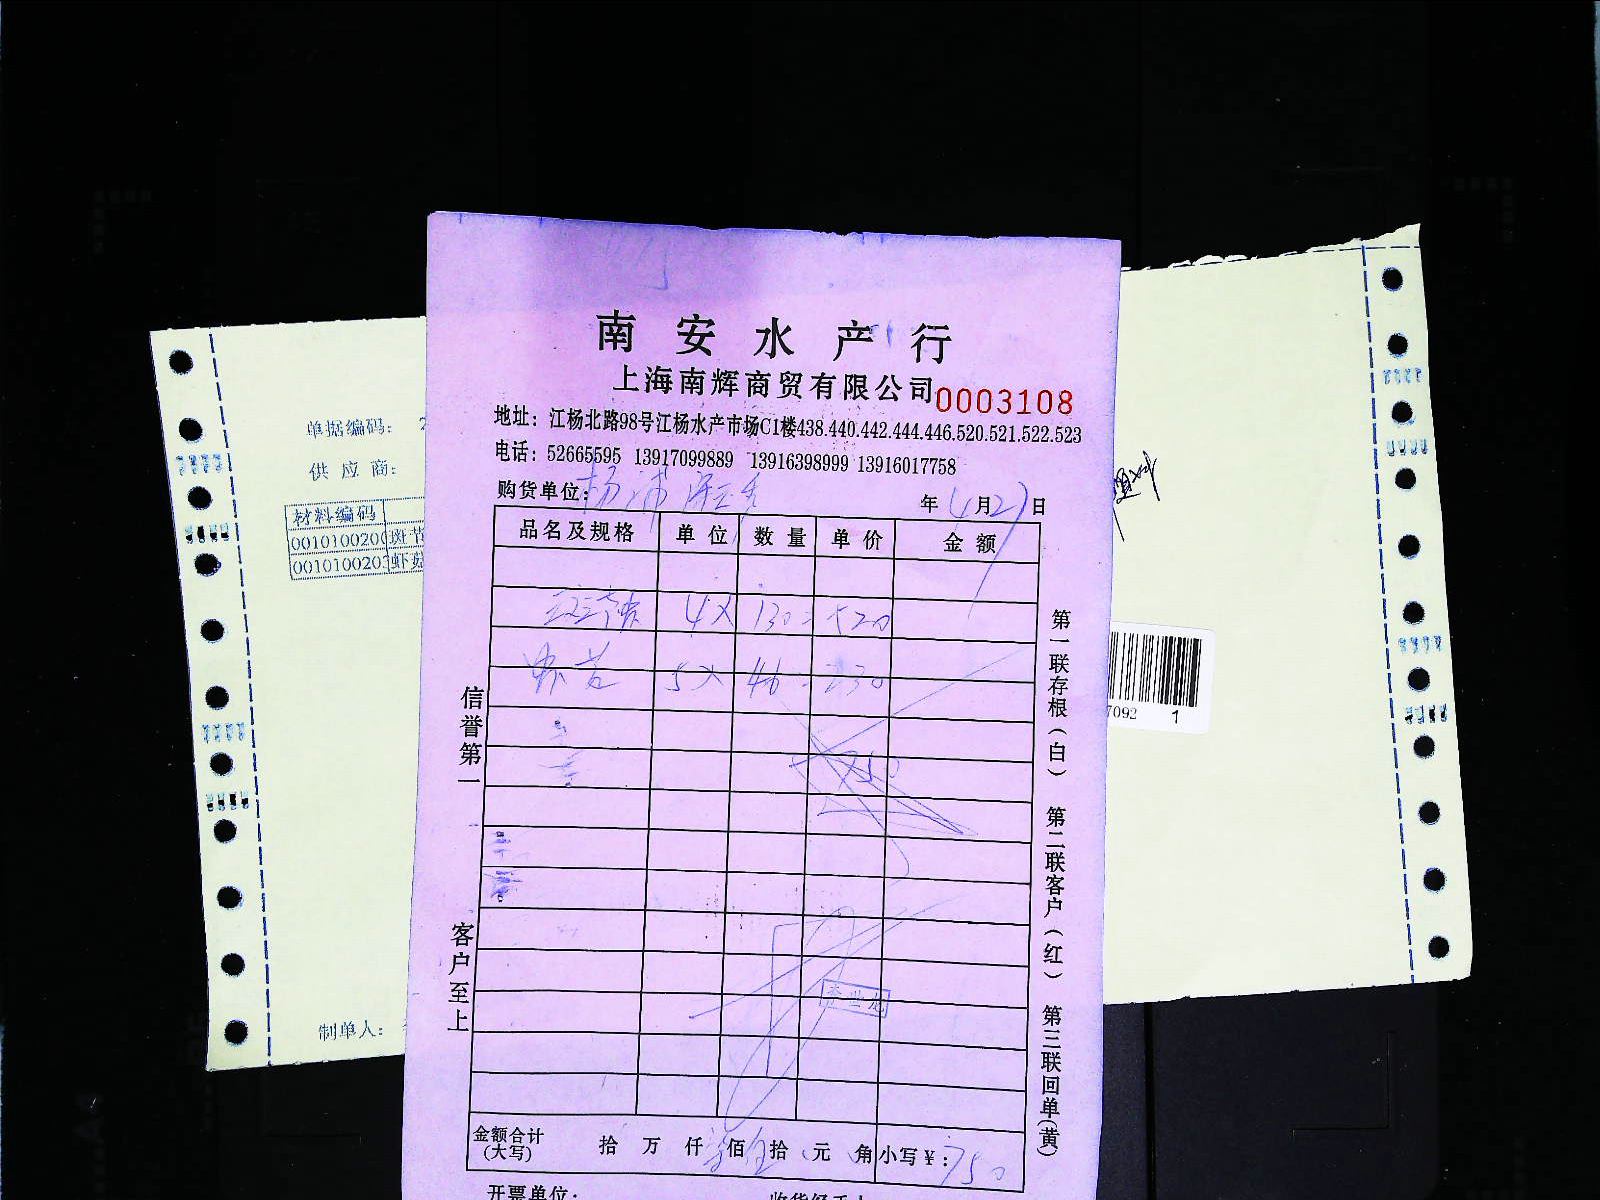 南安水产行
上海南辉商贸有限公司 0003108
地址：江杨北路98号江杨水产市场C1楼438.440.442.444.446.520.521.522.523
电话：52665595 13917099889 13916398999 13916017758
购货单位：杨浦
年 4 月 27 日
品名及规格 单位 数量 单价 金额
4X 130 = 520
虾菇 5X 46 = 230
750
信誉第一
客户至上
第一联存根（白） 第二联客户（红） 第三联回单（黄）
金额合计（大写） 拾 万 仟 佰 拾 元 角 小写￥：750
开票单位：
单据编码：2
供应商：
材料编码
0010100200 斑节
0010100203 虾菇
制单人：
7092 1